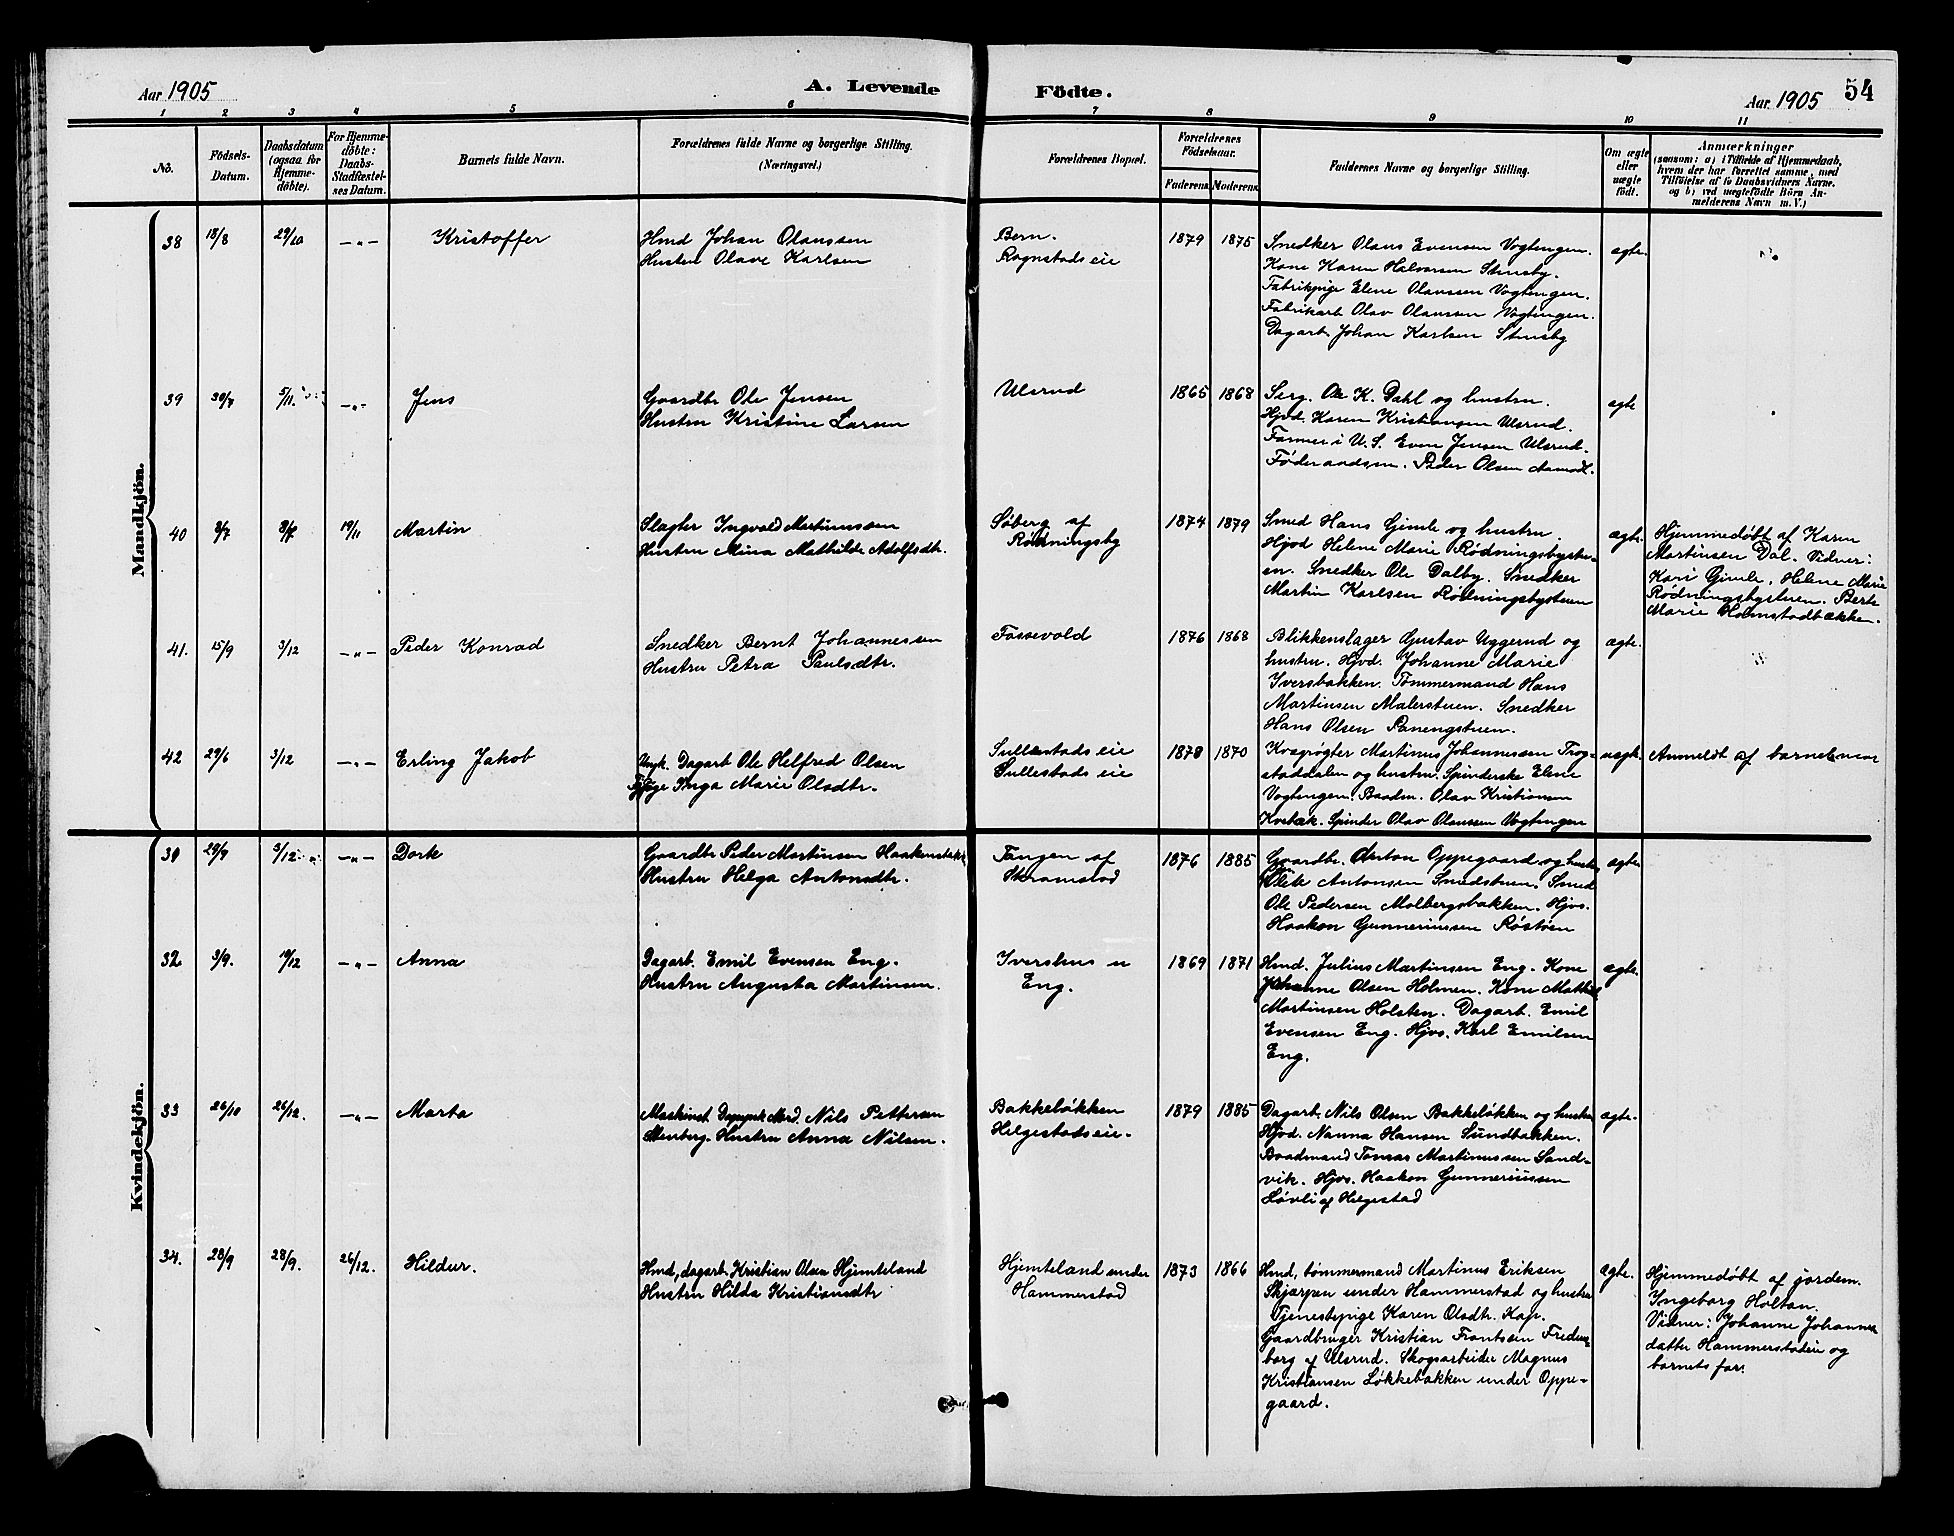 Aar 1905
A. Levende
Födte.
Aar 1905
54
1 2 3 4 5 6 7 8 9 10 11
No.
Födsels-
Datum.
Daabsdatum
(ogsaa for
Hjemme-
döbte).
For Hjemme-
döbte:
Daabs-
Stadfæstel-
ses Datum.
Barnets fulde Navn.
Forældrenes fulde Navne og borgerlige Stilling.
(Næringsvei.)
Forældrenes Bopæl.
Forældrenes
Födselsaar.
Faderens Moderens
Faddernes Navne og borgerlige Stilling.
Om ægte
eller
uægte
födt.
Anmærkninger
(saasom: a) i Tilfælde af Hjemmedaab,
hvem der har forrettet samme, med
Tilföielse af to Daabsvidners Navne,
og b) ved uægtefödte Börn An-
melderens Navn m. V.)
Mandkjön.
38 18/8 29/10 -„- Kristoffer
Hmd Johan Olaussen
Hustru Olave Karlsen
Bern.
Rognstadseie
1879 1875
Snedker Olaus Evensen Vogtengen.
Kone Karen Halvorsen Stensby.
Fabrikpige Elene Olaussen Vogtengen.
Fabrikarb Olav Olaussen Vogtengen.
Dagarb. Johan Karlsen Stensby
ægte.
39 30/7 5/11 -„- Jens
Gaardbr Ole Jensen
Hustru Kristine Larsen
Ulsrud
1865 1868
Serg. Ole K. Dahl og hustru.
Hjvd. Karen Kristiansen Ulsrud.
Farmer i U. S. Even Jensen Ulsrud.
Föderaadsm. Peder Olsen Aamodt.
ægte
40 8/7 19/11 Martin
Slagter Ingvald Martinussen
Hustru Mina Mathilde Adolfsdtr.
Söberg af
Rödningsby
1874 1879
Smed Hans Gimle og hustru.
Hjvd Helene Marie Rödningsbystu-
en. Snedker Ole Dalby. Snedker
Martin Karlsen Rödningsbystuen
ægte.
Hjemmedöbt af Karen
Martinsen Dal. Vidner:
Kari Gimle, Helene Marie
Rödningsbystuen. Berte
Marie Holmstadbækken.
41. 15/9 3/12 -„- Peder Konrad
Snedker Bernt Johannessen
Hustru Petra Paulsdtr.
Fossevold
1876 1868
Blikkenslager Gustav Uggerud og
hustru. Hjvd. Johanne Marie
Iversbakken. Tömmermand Hans
Martinsen Malerstuen. Snedker
Hans Olsen Panengstuen.
ægte.
42 29/6 3/12 -„- Erling Jakob
Ungk. Dagarb Ole Helfred Olsen
Pige Inga Marie Olsdtr.
Sullestadseie
Sullestadseie
1878 1870
Kvægrögter Martinus Johannessen Trog-
staddalen og hustru. Spinderske Elene
Vogtengen. Baadm. Olav Kristiansen
Kvebæk. Spinder Olav Olaussen Vogtengen
uægte.
Anmeldt af barnets mor
Kvindekjön.
31 29/9 3/12 -„- Dorte
Gaardbr Peder Martinsen
Hustru Helga Antonsdtr.
Tangen af
Skramstad
1876 1885
Gaardbr. Anton Oppegaard og hustru
Antonsen Smedstuen. Smed
Ole Pedersen Molbergsbakken. Hjvs.
Haakon Gunneriussen Röstöen
ægte
32. 3/9. 19/12 -„- Anna
Dagarb. Emil Evensen Eng.
Hustru Augusta Martinsen.
Eng.
1869 1871
Hmd. Julius Martinsen Eng. Kone
Johanne Olsen Holmen. Kone
Martinsen Holsten. Dagarb. Emil
Evensen Eng. Hjvs. Karl Emilsen
Eng.
ægte.
33 26/10 26/12. -„- Marta
Maskinist Nils Pettersen
Stenberg. Hustru Anna Nilsen.
Bakkelökken
Helgestadseie.
1879 1885
Dagarb. Nils Olsen Bakkelökken og hustru
Hjvd. Nanna Hansen Sundbakken.
Baadmand Tomas Martinussen Sand-
vik. Hjvs. Haakon Gunneriussen
Lövli af Helgestad
ægte.
34. 28/9 28/9. 26/12. Hildur.
Hmd, dagarb. Kristian Olsen Hjemteland
Hustru Hilda Kristiansdtr
Hjemteland under
Hammerstad
1873 1866
Hmd, tömmermand Martinus Eriksen
Skjærpen under Hammerstad og hustru
Tjenestepige Karen Olsdtr. Kap.
Gaardbruger Kristian Frantsen Fredens-
borg af Ulsrud. Skogsarbeider Magnus
Kristiansen Lökkebakken under Oppe-
gaard.
ægte.
Hjemmedöbt af jordem.
Ingeborg Holtan.
Vidner: Johanne Johannes
datter Hammerstadeie og
barnets far.